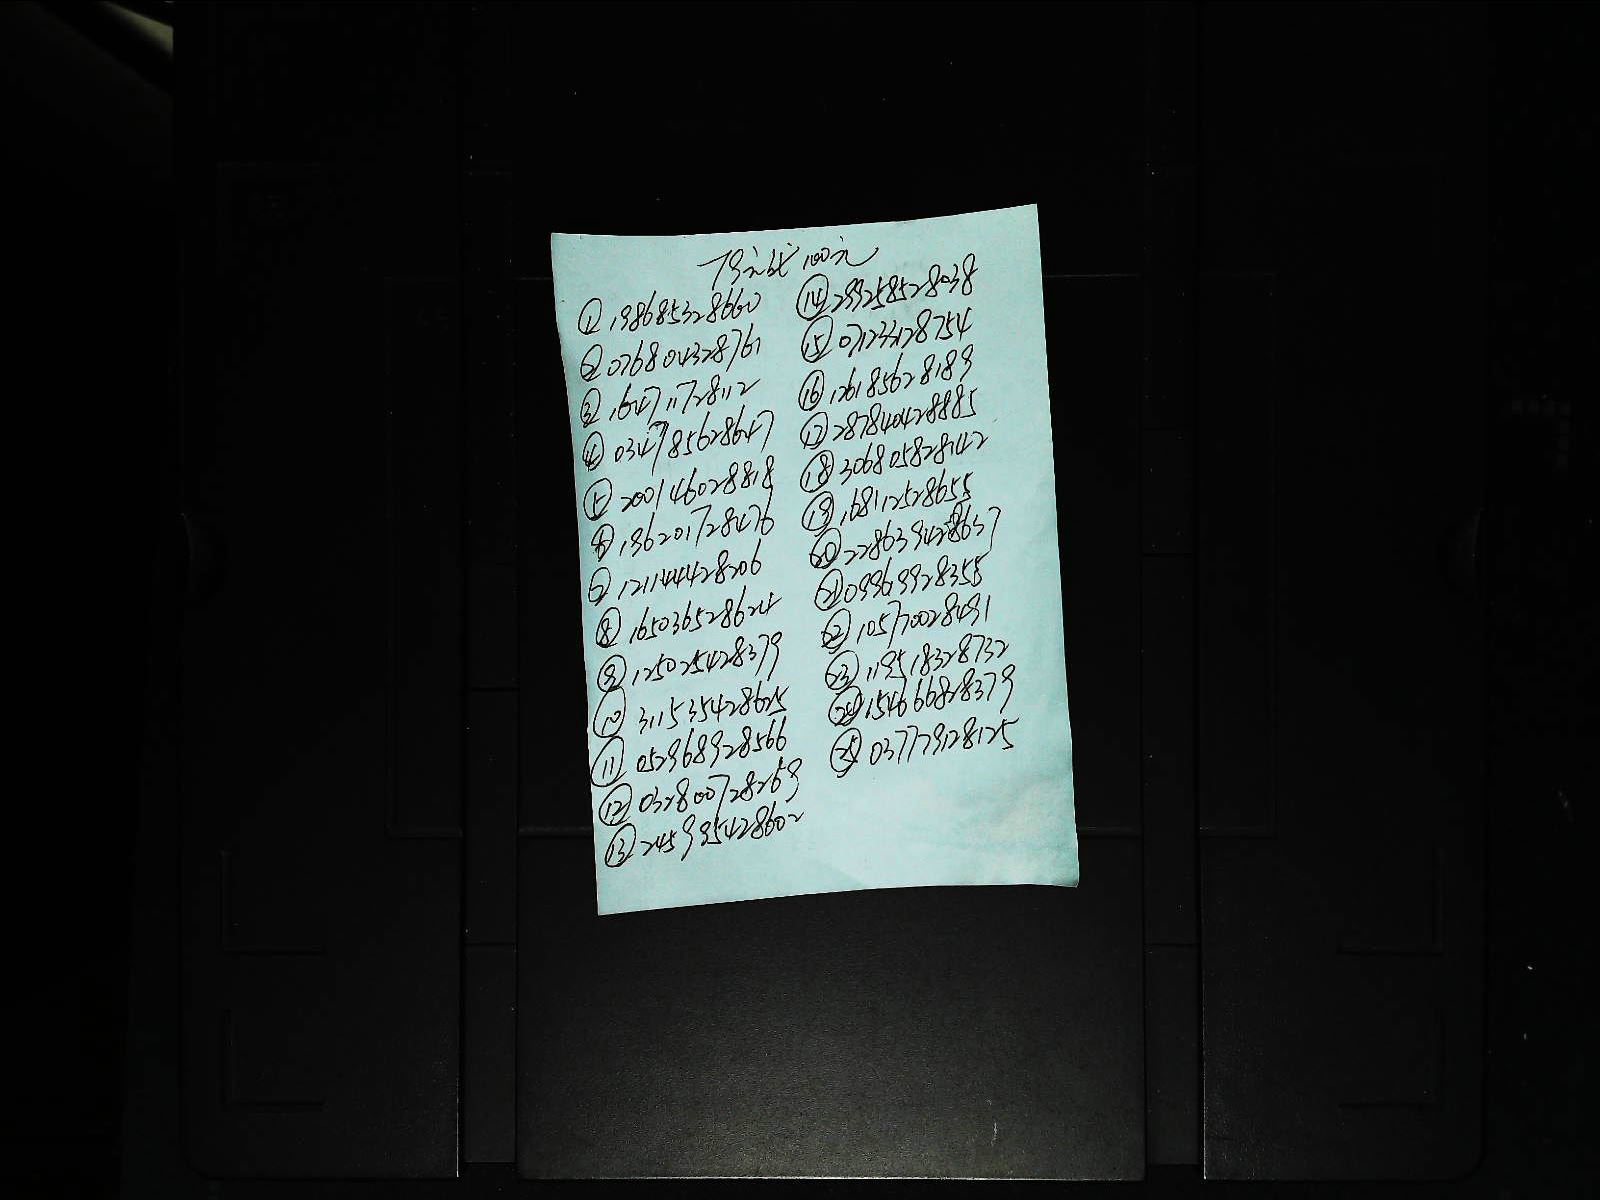 79元战100元
① 198685328660
② 076804328761
③ 164711728112
④ 034785628647
⑤ 200146028818
⑥ 196201728476
⑦ 121144428206
⑧ 165036528624
⑨ 125025428379
⑩ 311535428625
⑪ 052968928566
⑫ 032800728269
⑬ 245995428602
⑭ 299258528038
⑮ 071233128754
⑯ 126185628189
⑰ 287840428885
⑱ 306805828142
⑲ 168112528655
⑳ 228639428637
㉑ 09969928355
㉒ 105770028491
㉓ 119518328732
㉔ 154666828379
㉕ 037779128125